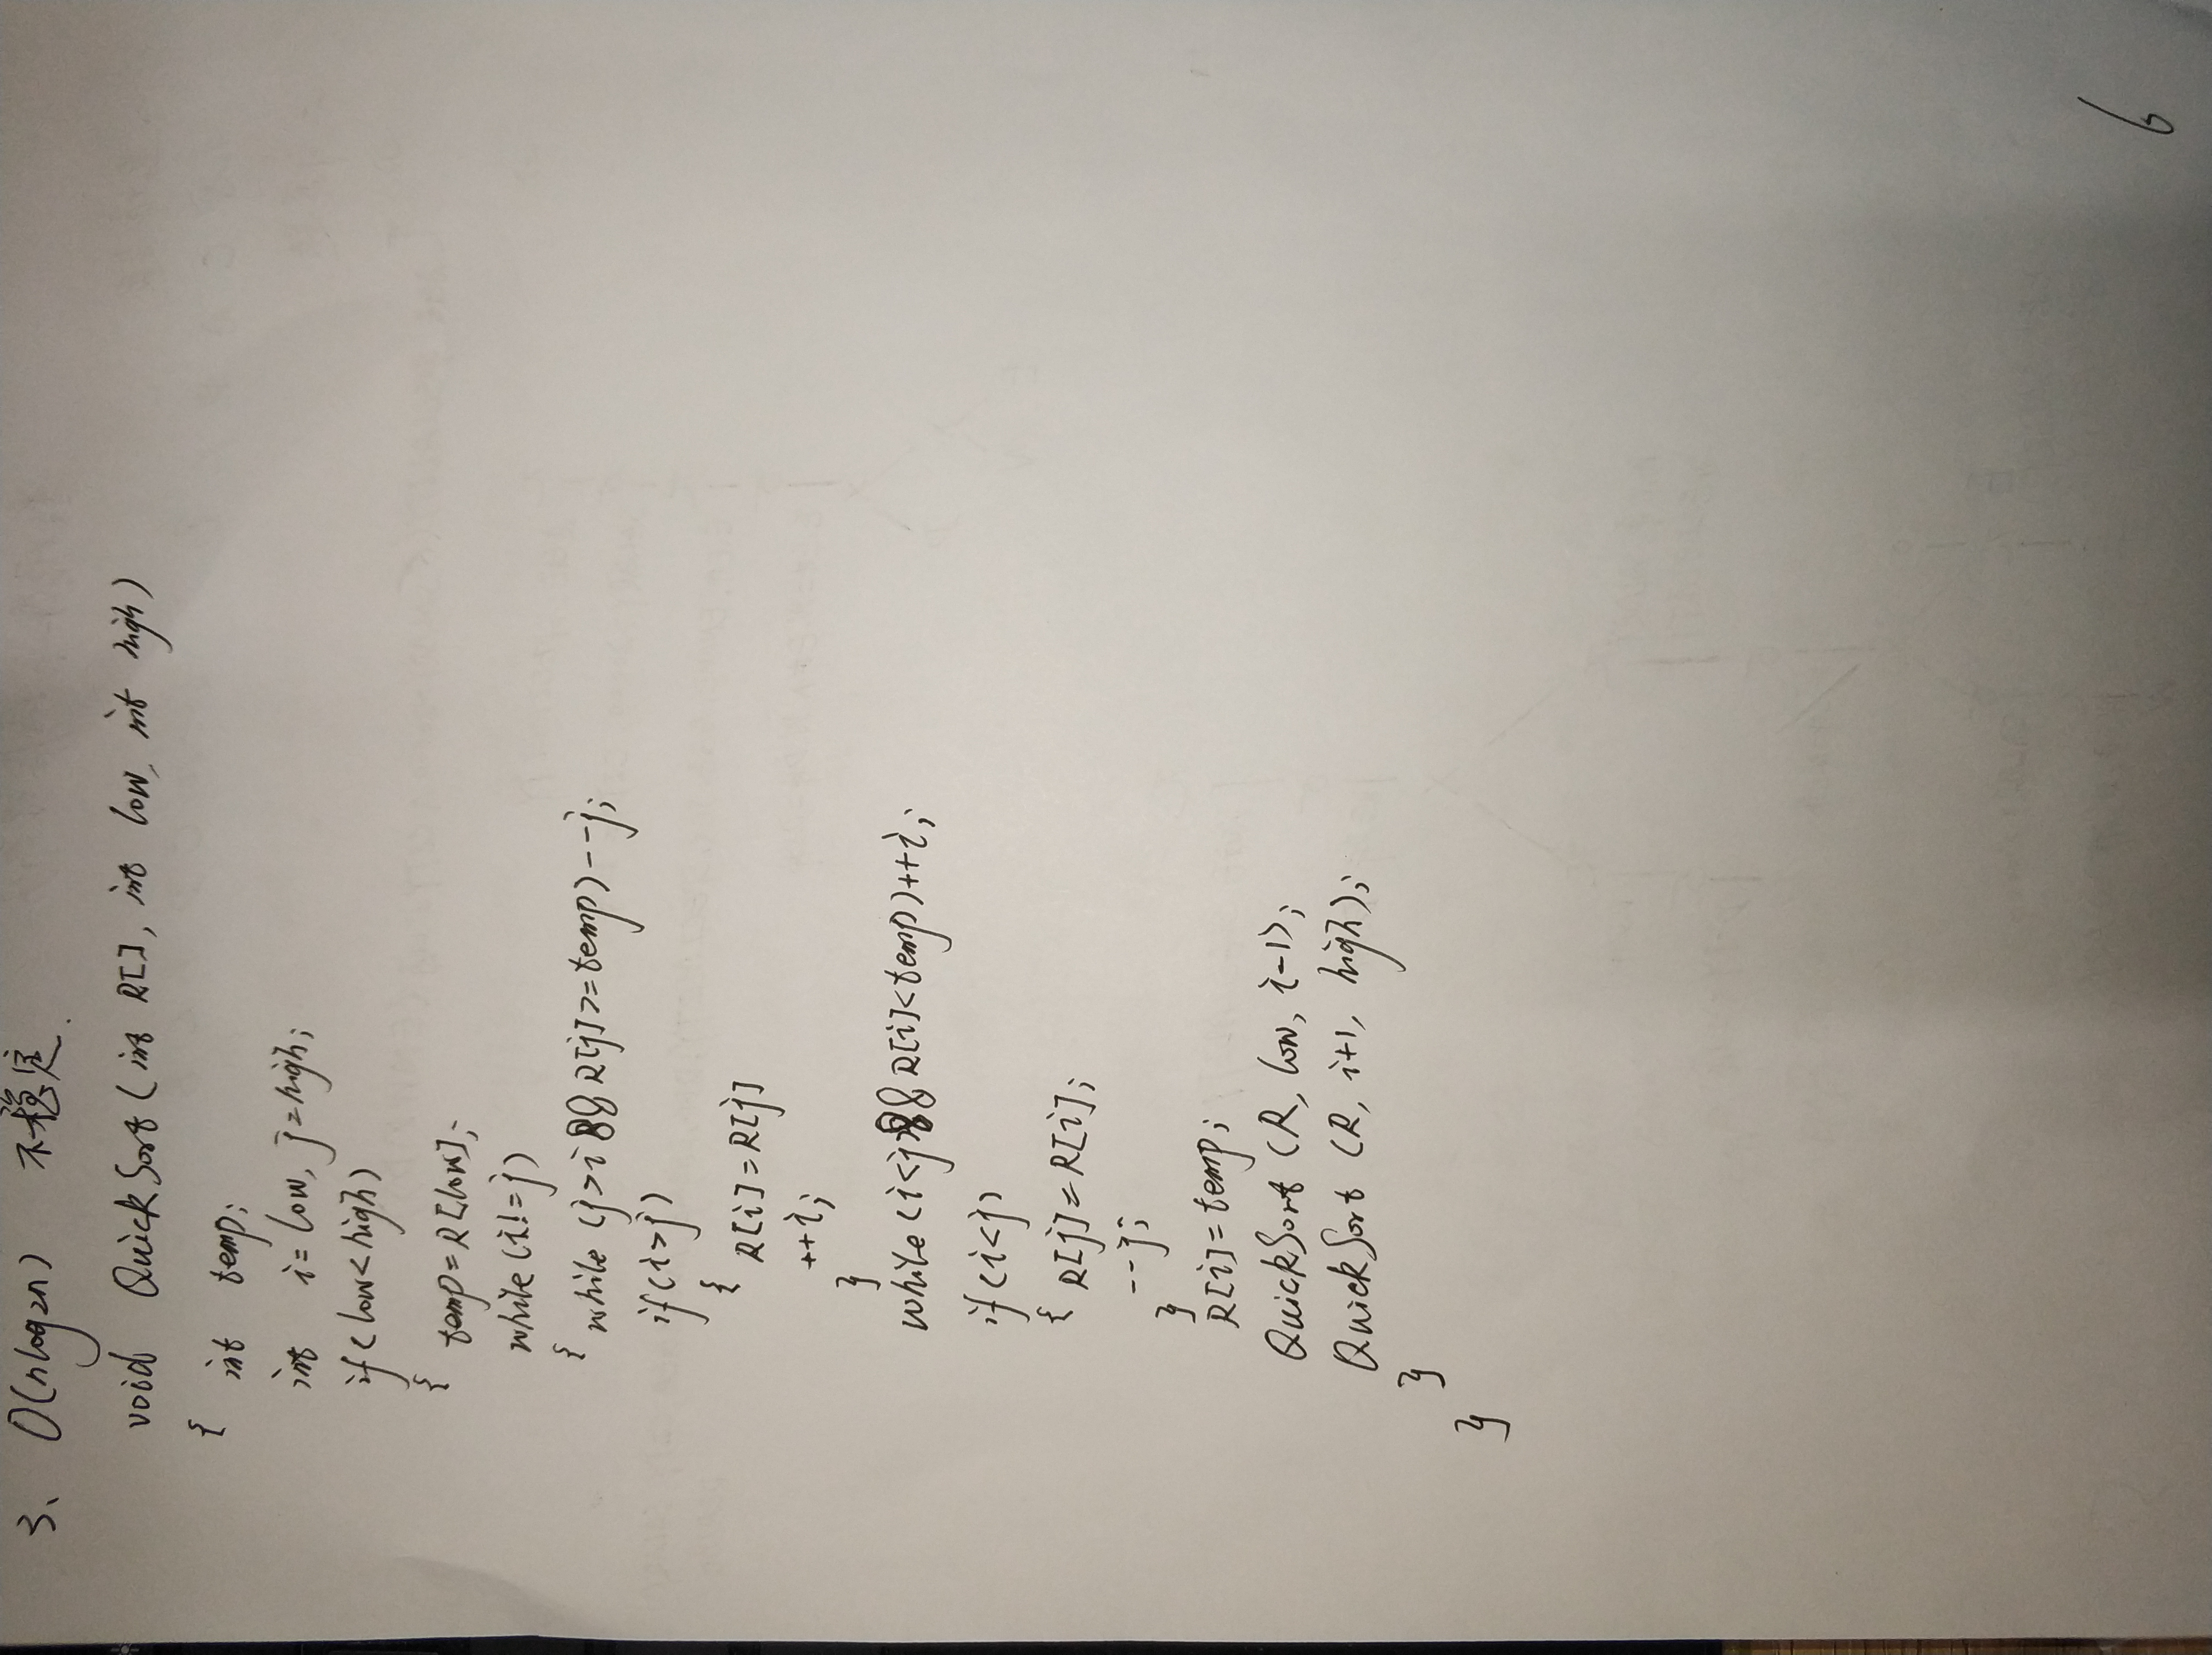 3、 O(nlog2n) 不稳定.
void QuickSort(int R[], int low, int high)
{ int temp;
int i=low, j=high;
if(low<high)
{ temp=R[low];
while(i!=j)
{ while(j>i&&R[j]>=temp)--j;
if(i>j)
{ R[i]=R[j]
++i;
}
while(i<j&&R[i]<temp)++i;
if(i<j)
{ R[j]=R[i];
--j;
}
R[i]=temp;
QuickSort(R, low, i-1);
QuickSort(R, i+1, high);
}
}
6